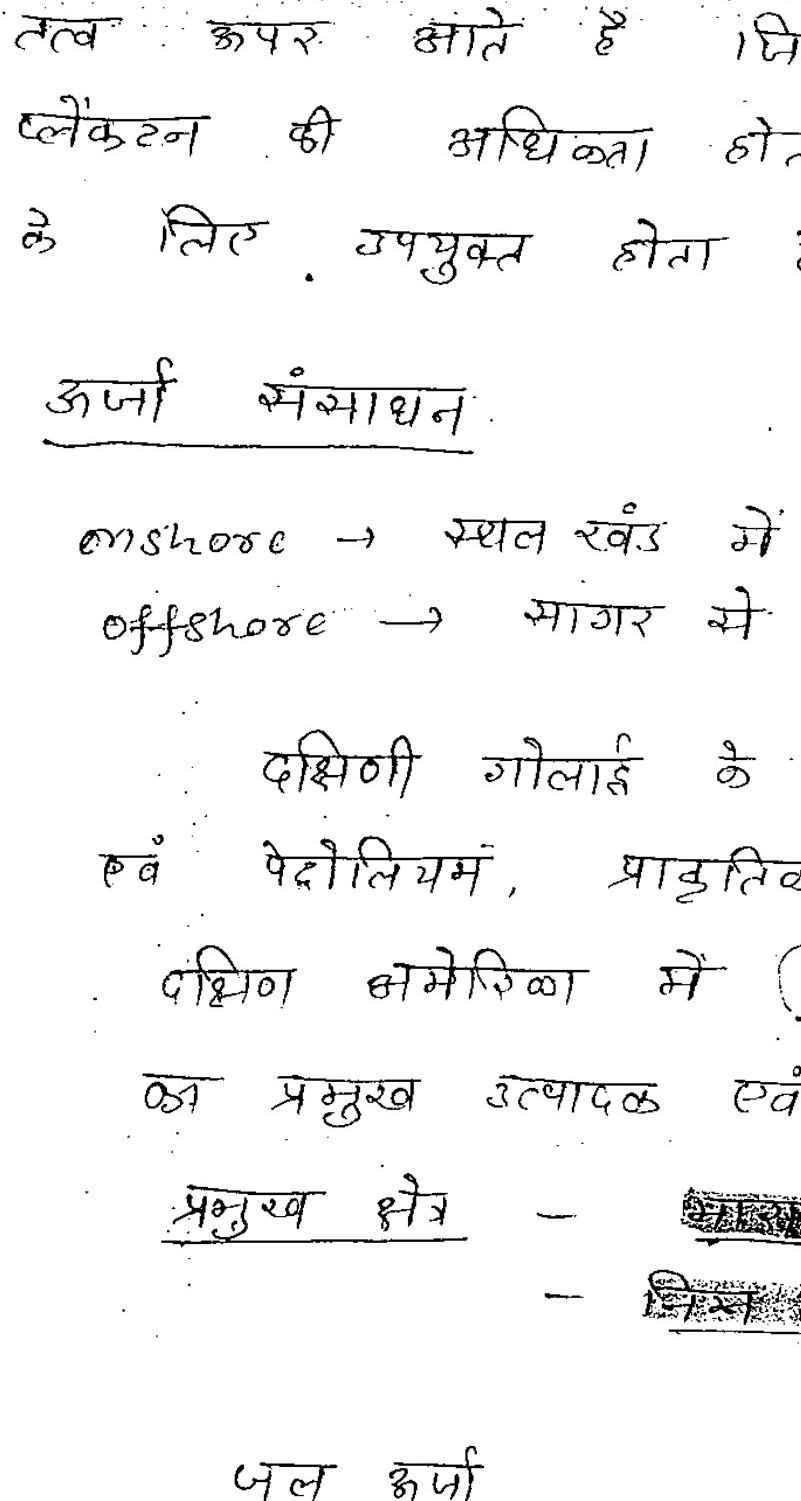 तत्व ऊपर आते है
प्लेंकटन की अधिकता
के लिए उपयुक्त होता
ऊर्जा संसाधन
onshore → स्थल खंड में
offshore → सागर मे
दक्षिणी गोलार्ध के
एवं पेट्रोलियम,
दक्षिण अमेरिका में (
का प्रमुख उत्पादक एवं
प्रमुख क्षेत्र -
-
जल ऊर्जा